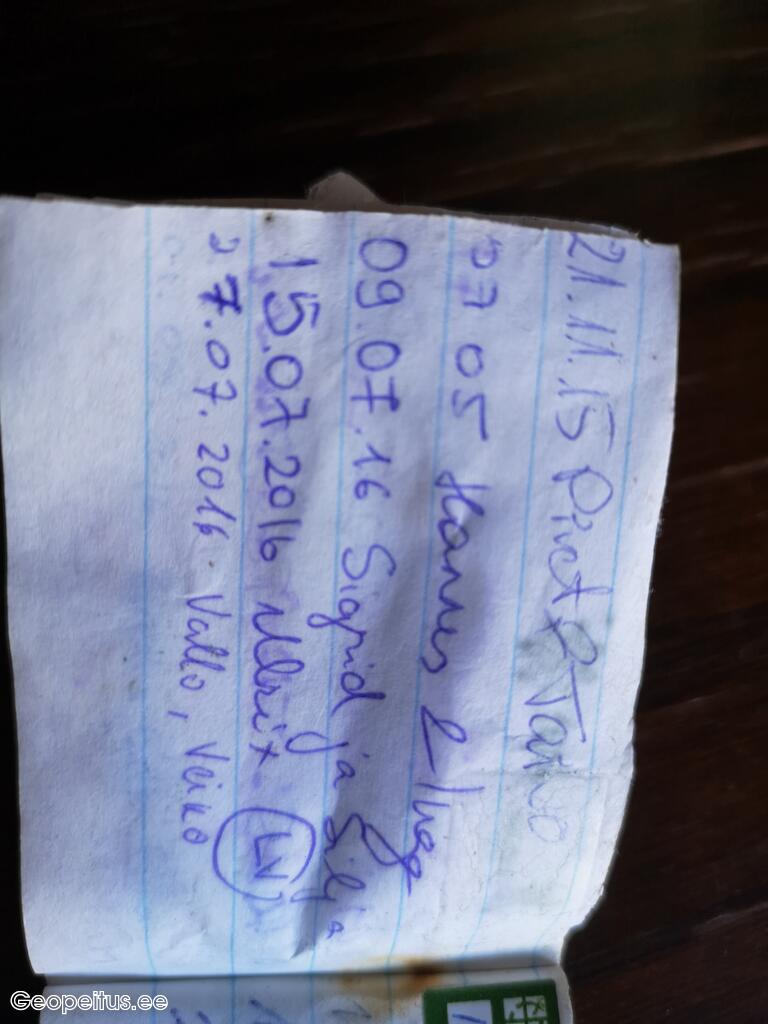 21.11.15 Piret & Tarvo
07 05 Hannes &
09.07.16 Sigrid ja Silja
15.07.2016 (LV)
27.07.2016 Vallo, Veiko
Geopeitus.ee